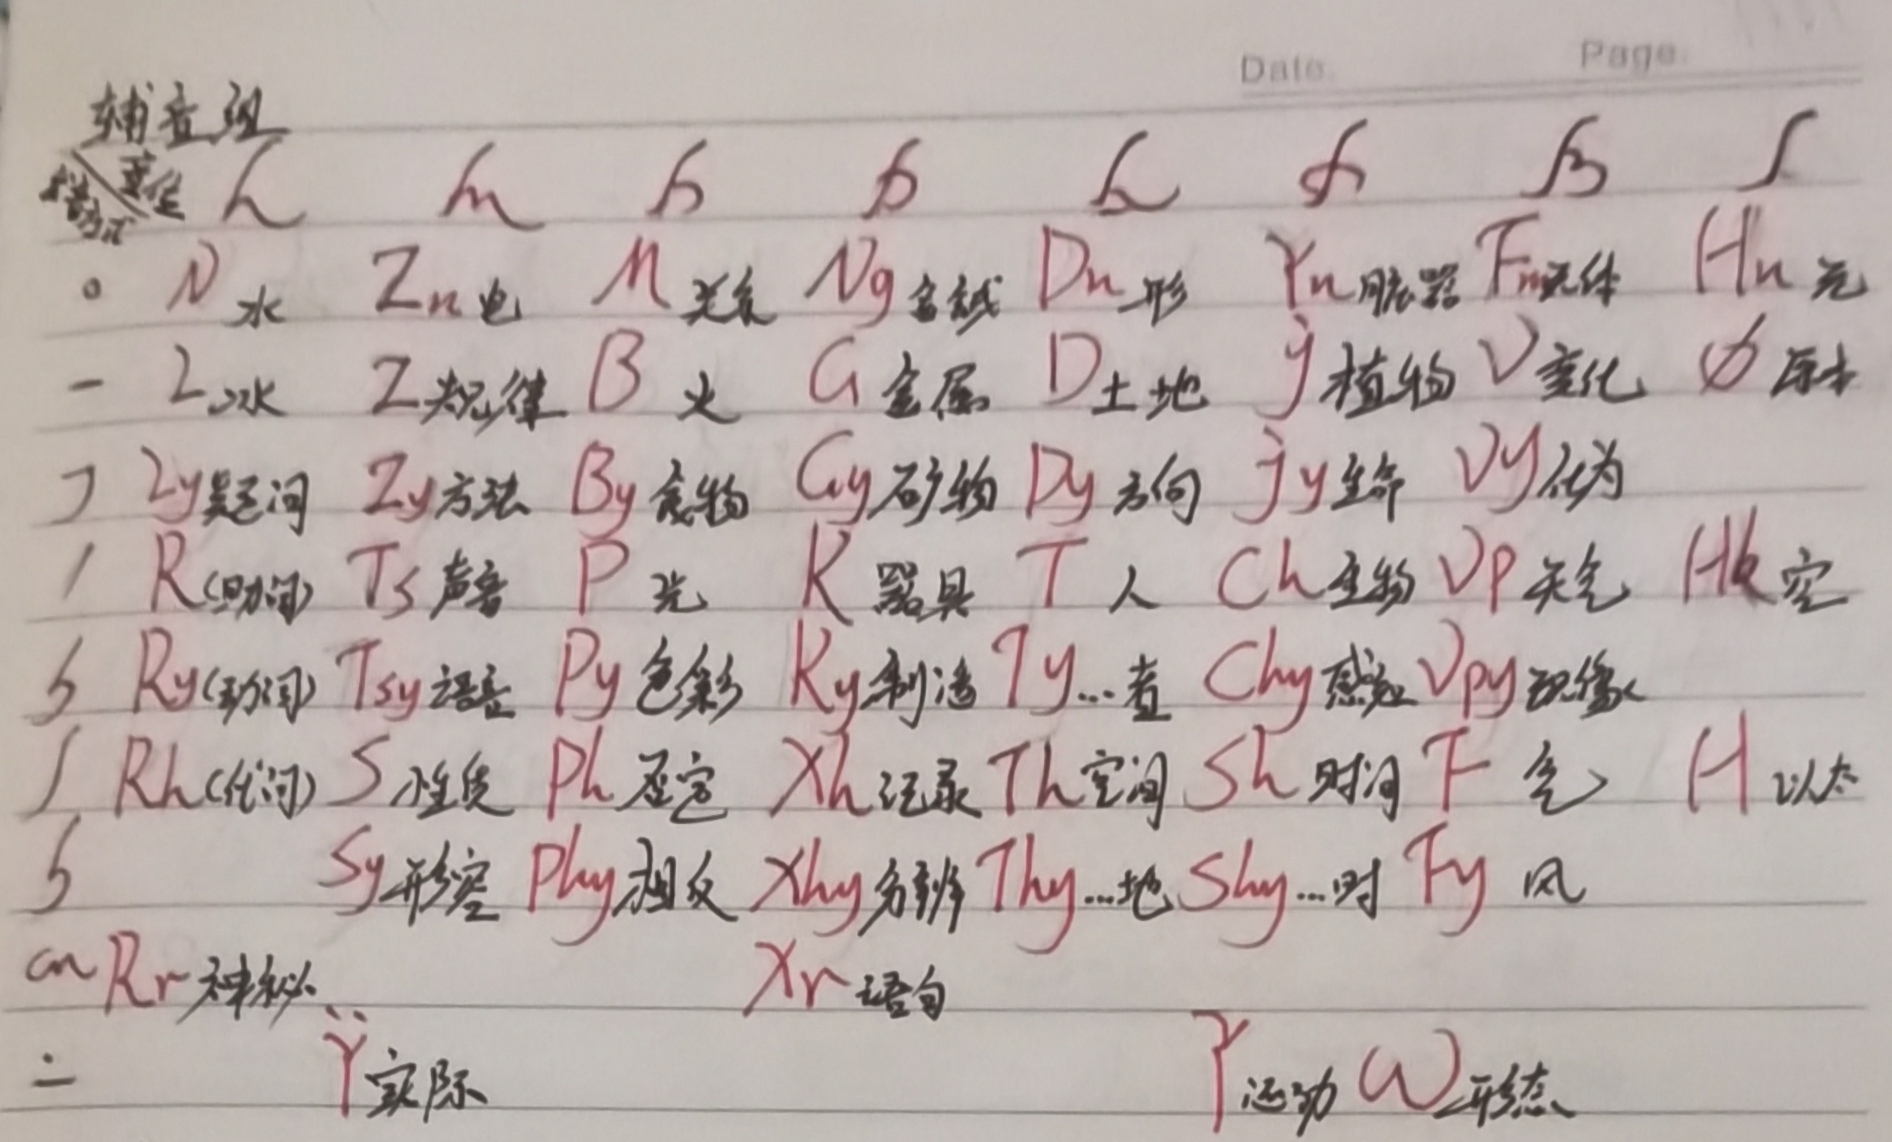 Date. Page.
辅音组
N水 Zn电 M Ng Dn形 Yn脏器 Fn Hn
L水 Z规律 B火 G金属 D土地 j植物 V变化 ∅
Ly疑问 Zy方法 By食物 Gy矿物 Dy方向 jy生命 Vy化为
R(助词) Ts声音 P光 K器具 T人 Ch生物 Vp天气 Hk空
Ry(动词) Tsy语言 Py色彩 Ky制造 Ty...者 Chy感应 Vpy现象
Rh(代词) S性质 Ph否定 Xh记录 Th空间 Sh时间 F气 H以太
Sy形容 Phy相反 Xhy分辨 Thy...地 Shy...时 Fy风
Rr神秘 Xr语句
Ÿ实际 运动 形态